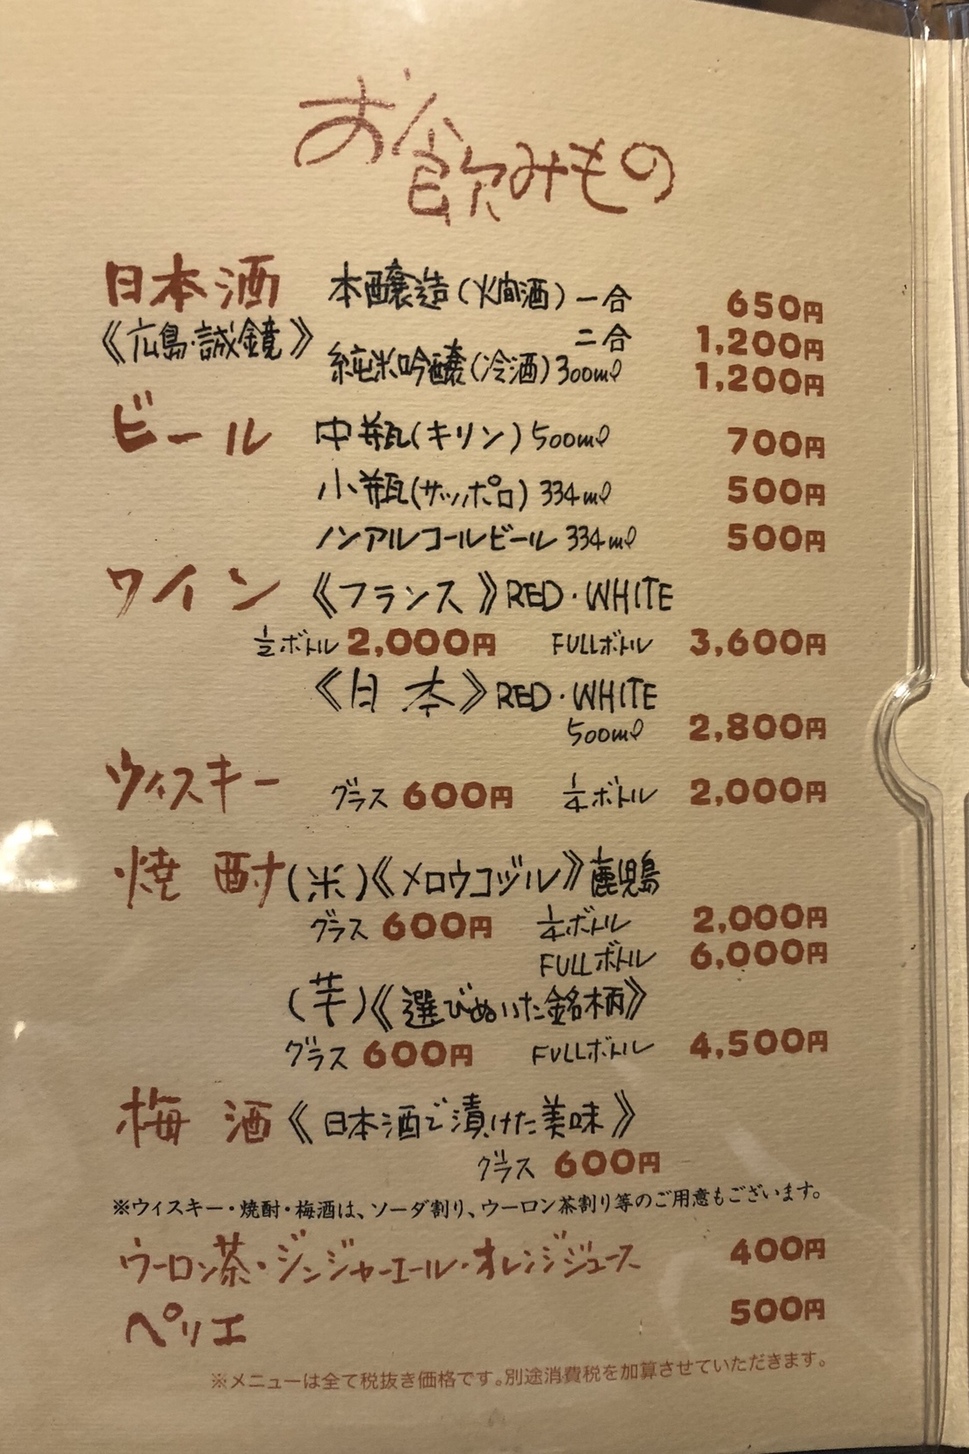 お飲みもの
日本酒 本醸造(火燗酒)一合 650円
《広島·誠鏡》 二合 1,200円
純米吟醸(冷酒)300ml 1,200円
ビール 中瓶(キリン)500ml 700円
小瓶(サッポロ)334ml 500円
ノンアルコールビール 334ml 500円
ワイン 《フランス》RED·WHITE
½ボトル 2,000円 FULLボトル 3,600円
《日本》RED·WHITE
500ml 2,800円
ウィスキー グラス 600円 ¼ボトル 2,000円
焼酎(米)《メロウコヅル》鹿児島
グラス 600円 ¼ボトル 2,000円
FULLボトル 6,000円
(芋)《選びぬいた銘柄》
グラス 600円 FULLボトル 4,500円
梅酒《日本酒で漬けた美味》
グラス 600円
※ウィスキー・焼酎・梅酒は、ソーダ割り、ウーロン茶割り等のご用意もございます。
ウーロン茶・ジンジャーエール・オレンジジュース 400円
ペリエ 500円
※メニューは全て税抜き価格です。別途消費税を加算させていただきます。